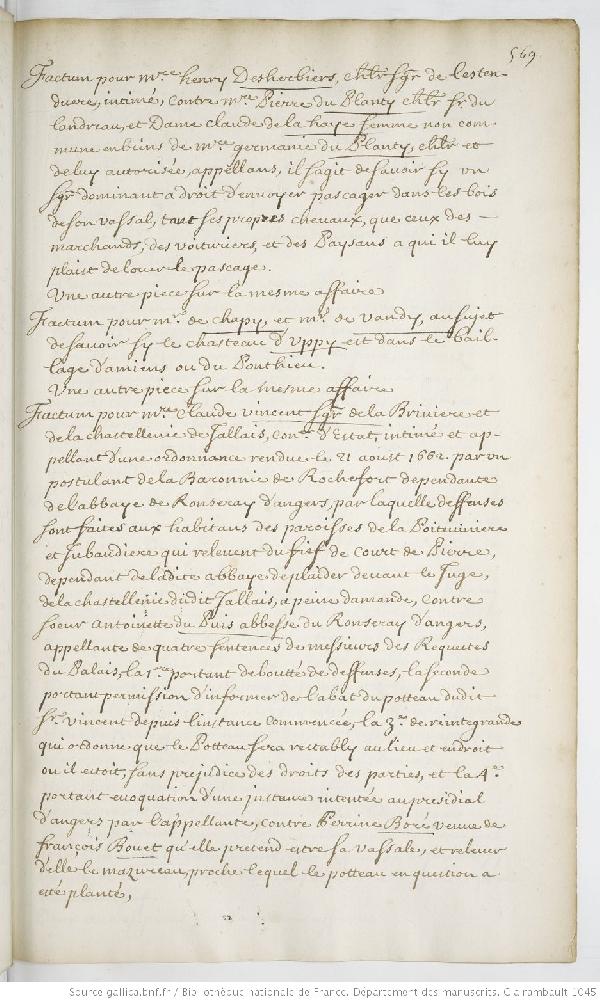 569.
Factum pour mre henry Desherbiers, chlr sgr de lesten-
duere, intimé, Contre mre Pierre du Planty chlr sr du
landreau, et Dame claude de la haye femme non com-
mune en biens de mre germanic du Planty, chlr et
de luy autorisée, appellans, il s'agit de savoir sy un
sgr dominant a droit d'envoyer pascager dans les bois
de son vassal, tant ses propres chevaux, que ceux des -
marchands, des voituriers, et des Paysans a qui il luy
plaist de louer le pascage.
Une autre piece sur la mesme affaire
Factum pour mr. de chapy, et mr. de vandy, au sujet
de savoir sy le chasteau d'Uppy est dans le bail-
lage d'amiens ou du Ponthieu.
Une autre piece sur la mesme affaire
Factum pour mre Claude vincent sgr de la Briniere et
de la chastellenie de Jallais, conr. d'Estat, intimé et ap-
pellant d'une ordonnance rendue le 21 aoust 1662. par un
postulant de la Baronnie de Rochefort dependante
de l'abbaye de Ronseray d'angers, par laquelle deffenses
sont faites aux habitans des paroisses de la Poiteviniere
et Jubaudiere qui relevent du fief de Court de Pierre,
dependant de ladite abbaye de plaider devant le Juge,
de la chastellenie dudit Jallais, a peine d'amande, Contre
soeur Antoinette du Puis abbesse du Ronseray d'angers,
appellante de quatre sentences de messieurs des Requestes
du Palais, la 1re portant deboutté de deffenses, la seconde
portant permission d'informer de l'abat du potteau dudit
sr. vincent depuis l'instance commencée, la 3me de reintegrande
qui ordonne que le Potteau sera restably au lieu et endroit
ou il estoit, sans prejudice des droits des parties, et la 4e
portant evoquation d'une instance intentée au presidial
d'angers par l'appellante, contre Perrine Boré veuve de
françois Rouet qu'elle pretend estre sa vassale, et relever
d'elle le mazureau, proche lequel le potteau en question a
esté planté,
Source gallica.bnf.fr / Bibliothèque nationale de France. Département des manuscrits. Clairambault 1045